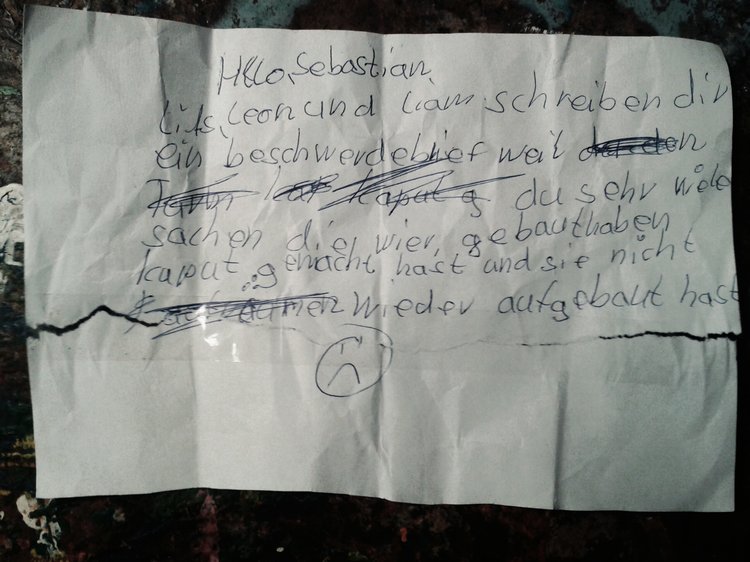 Hllo, Sebastian,
Leon und Liam schreiben dir
ein beschwerdebrief weil
du sehr wiele
sachen die, wier, gebauthaben
kaput gemacht hast und sie nicht
wieder aufgebaut hast